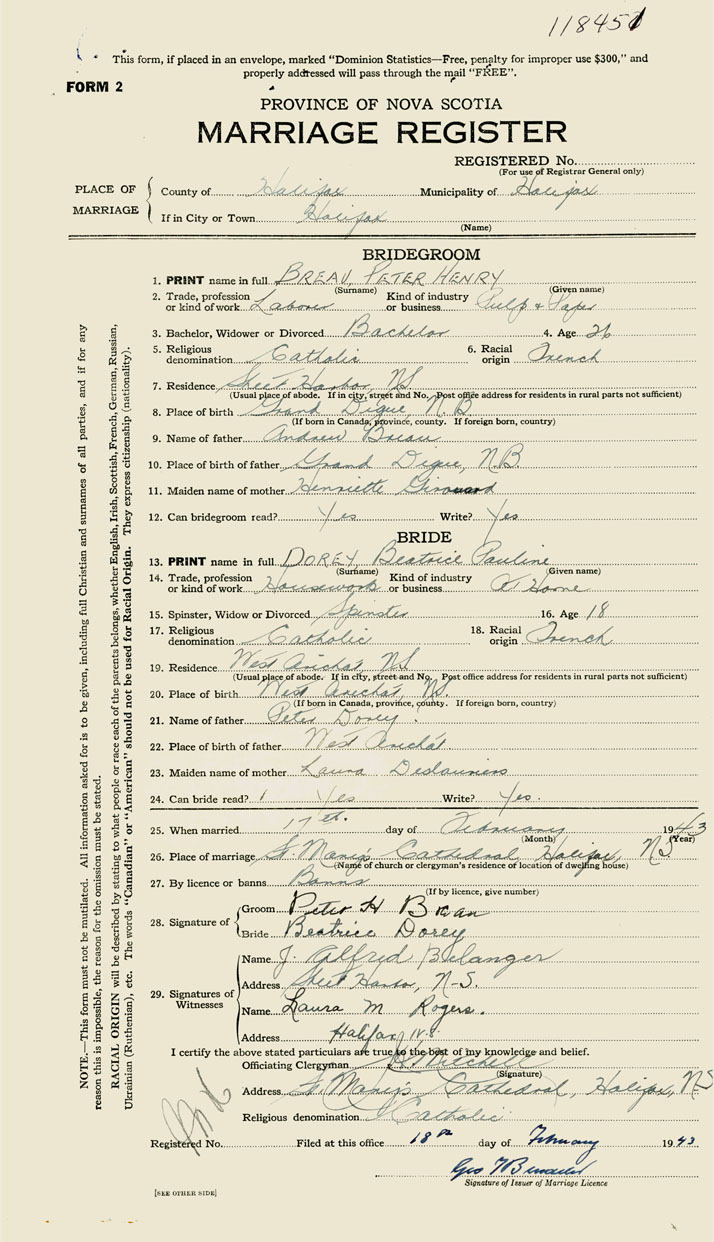 118451
This form, if placed in an envelope, marked "Dominion Statistics—Free, penalty for improper use $300," and
properly addressed will pass through the mail "FREE".
FORM 2
PROVINCE OF NOVA SCOTIA
MARRIAGE REGISTER
REGISTERED No.
(For use of Registrar General only)
PLACE OF MARRIAGE
County of Halifax Municipality of Halifax
If in City or Town Halifax
(Name)
BRIDEGROOM
1. PRINT name in full BREAU, PETER HENRY
(Surname) (Given name)
2. Trade, profession or kind of work Laborer Kind of industry or business Pulp & Paper
3. Bachelor, Widower or Divorced Bachelor 4. Age 26
5. Religious denomination Catholic 6. Racial origin French
7. Residence Sheet Harbor, NS
(Usual place of abode. If in city, street and No. Post office address for residents in rural parts not sufficient)
8. Place of birth Grand Digue, N.B
(If born in Canada, province, county. If foreign born, country)
9. Name of father Andrew Breau
10. Place of birth of father Grand Digue, N.B.
11. Maiden name of mother Henriette Girouard
12. Can bridegroom read? Yes Write? Yes
BRIDE
13. PRINT name in full DOREY, Beatrice Pauline
(Surname) (Given name)
14. Trade, profession or kind of work Housework Kind of industry or business At Home
15. Spinster, Widow or Divorced Spinster 16. Age 18
17. Religious denomination Catholic 18. Racial origin French
19. Residence West Arichat, NS
(Usual place of abode. If in city, street and No. Post office address for residents in rural parts not sufficient)
20. Place of birth West Arichat, NS.
(If born in Canada, province, county. If foreign born, country)
21. Name of father Peter Dorey.
22. Place of birth of father West Arichat.
23. Maiden name of mother Laura Deslauriers
24. Can bride read? Yes Write? Yes.
25. When married 17th. day of February 1943
(Month) (Year)
26. Place of marriage St. Mary's Cathedral Halifax, NS
(Name of church or clergyman's residence of location of dwelling house)
27. By licence or banns Banns
(If by licence, give number)
28. Signature of
Groom Peter H Breau
Bride Beatrice Dorey
29. Signatures of Witnesses
Name J. Alfred Belanger
Address Sheet Harbor, N-S.
Name Laura M Rogers.
Address Halifax N.S.
I certify the above stated particulars are true to the best of my knowledge and belief.
Officiating Clergyman Mitchell
(Signature)
Address St. Mary's Cathedral, Halifax, NS
Religious denomination Catholic
Registered No. Filed at this office 18th day of February 1943
Geo
Signature of Issuer of Marriage Licence
[SEE OTHER SIDE]
NOTE.—This form must not be mutilated. All information asked for is to be given, including full Christian and surnames of all parties, and if for any
reason this is impossible, the reason for the omission must be stated.
RACIAL ORIGIN will be described by stating to what people or race each of the parents belongs, whether English, Irish, Scottish, French, German, Russian,
Ukrainian (Ruthenian), etc. The words "Canadian" or "American" should not be used for Racial Origin. They express citizenship (nationality).